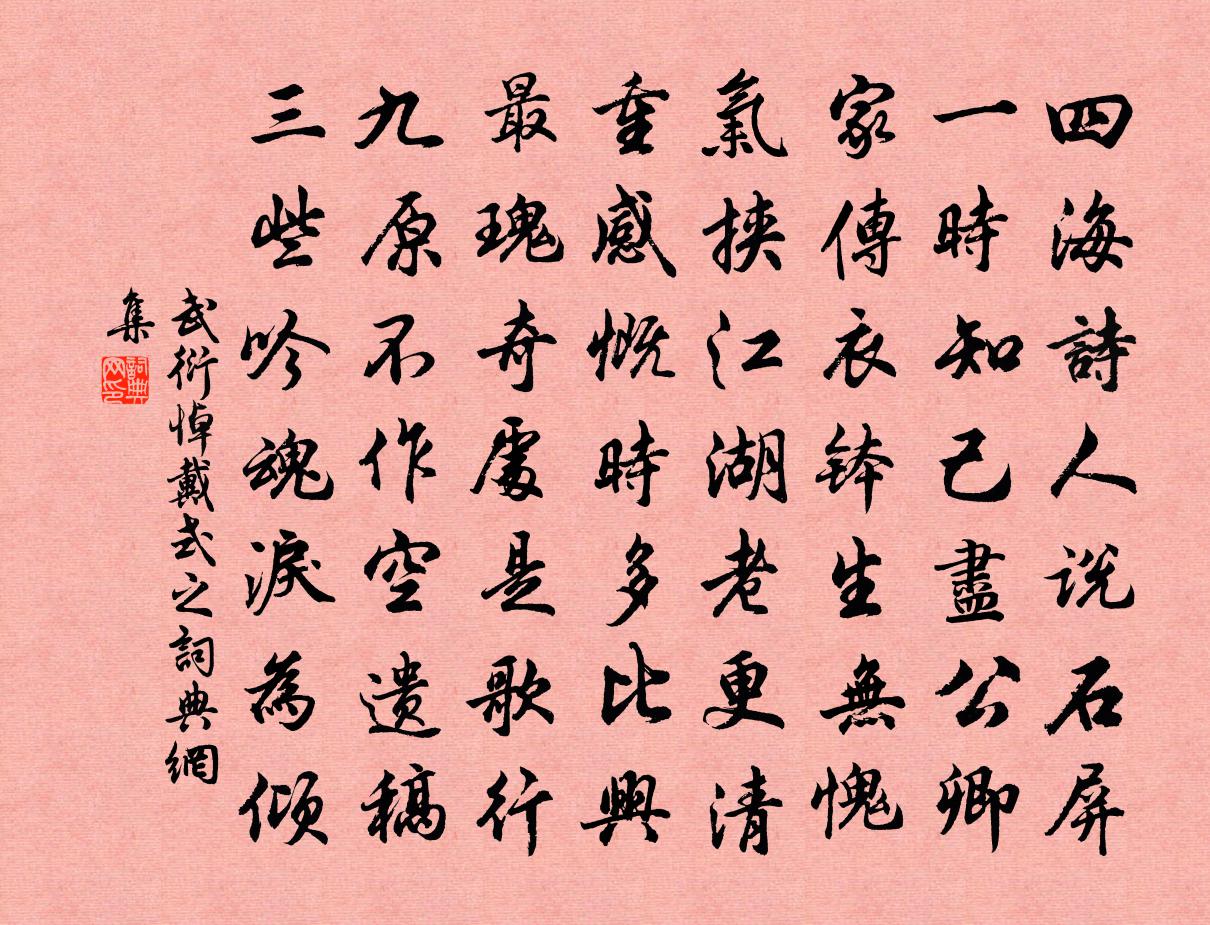 四海詩人说石屏
一時知己盡公卿
家傳衣钵生無愧
氣挾江湖老更清
重感慨時多比興
最瑰奇處是歌行
九原不作空遗稿
三些吟魂淚為傾
武衍悼戴式之詞典網
集
詞典网印